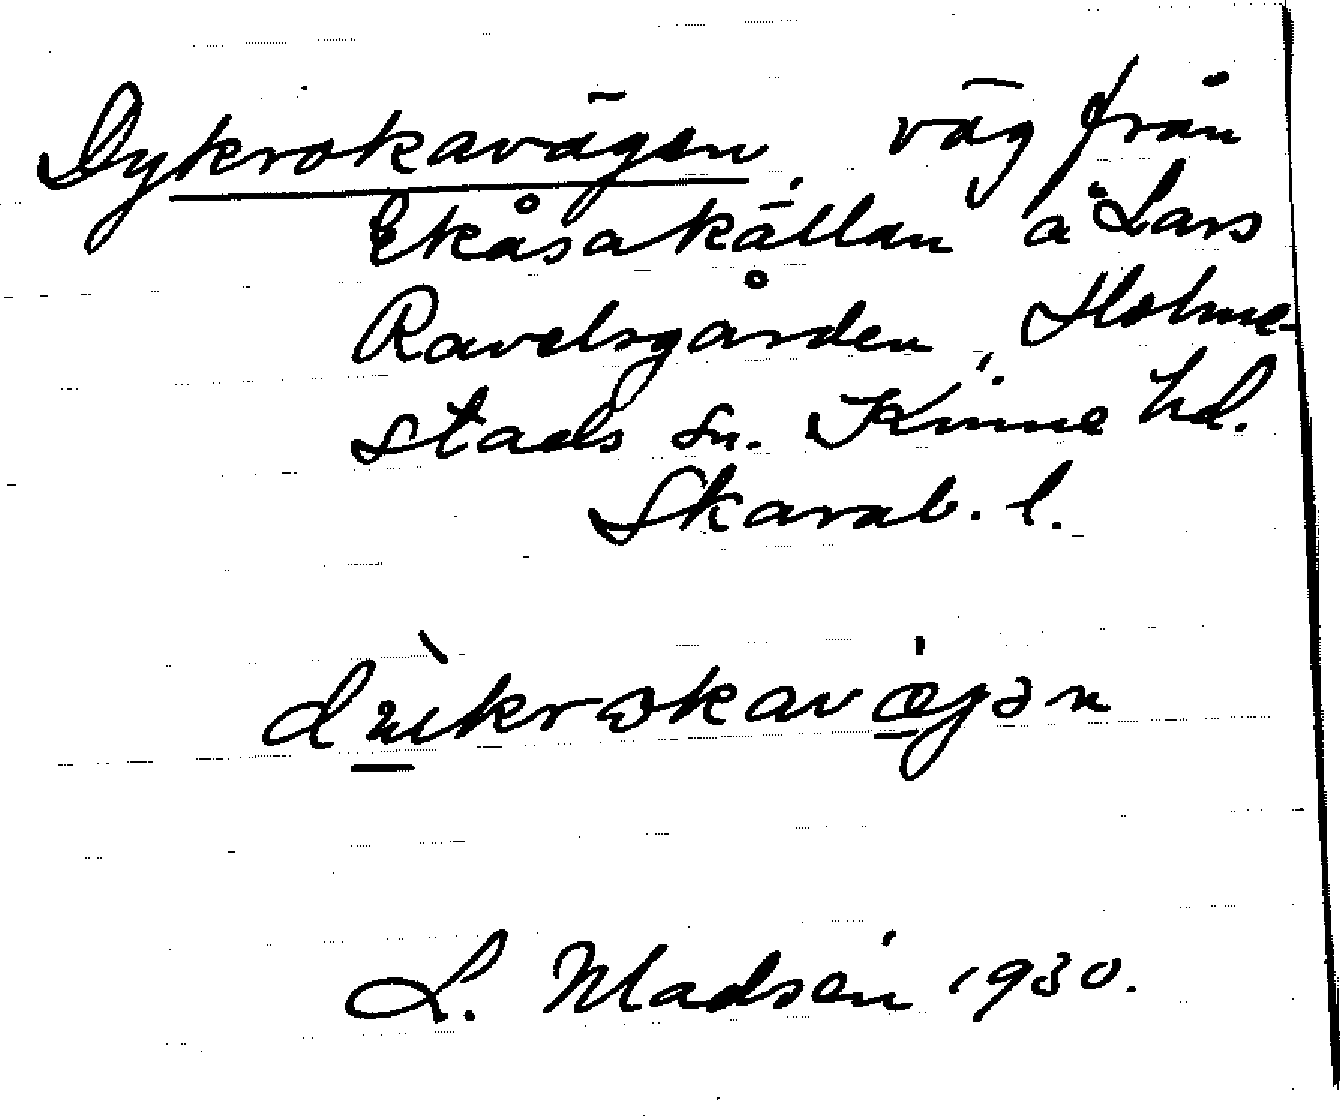 Dykrokavägen, väg från
Ekåsakällan å Lars
Ravelsgården, Holme-
stads sn. Kinne hd.
Skarab. l.
dukrokavægən
L. Madsén 1930.